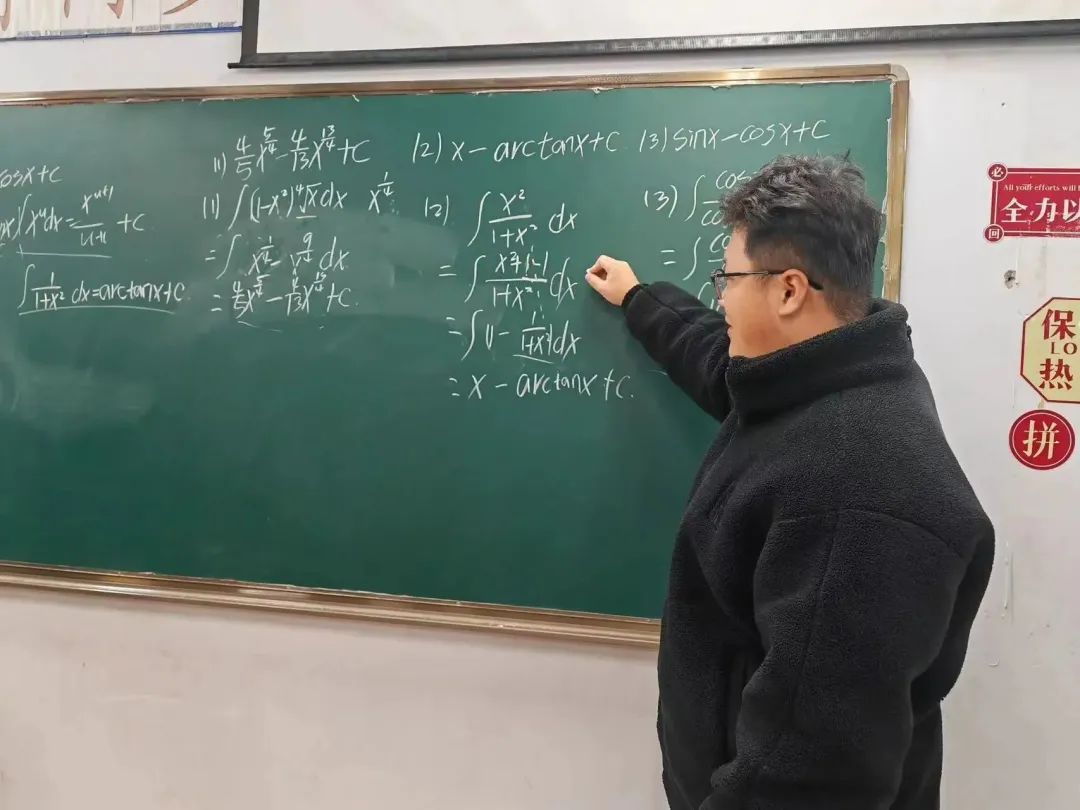 cosx+c
∫x^u dx = x^(u+1)/(u+1) + c
∫ 1/(1+x²) dx = arctanx+c
11) 4/5 x^(5/4) - 4/13 x^(13/4) + C
(1) ∫(1-x²) ⁴√x dx x^(1/4)
= ∫ x^(1/4) - x^(9/4) dx
= 4/5 x^(5/4) - 4/13 x^(13/4) + C.
12) x - arctanx + C
12) ∫ x²/(1+x²) dx
= ∫ (x²+1-1)/(1+x²) dx
= ∫ (1 - 1/(1+x²)) dx
= x - arctanx + C.
13) sinx - cosx + C
(3) ∫ cos
= ∫
All your efforts will
必
全力以
回
保
LO
热
拼